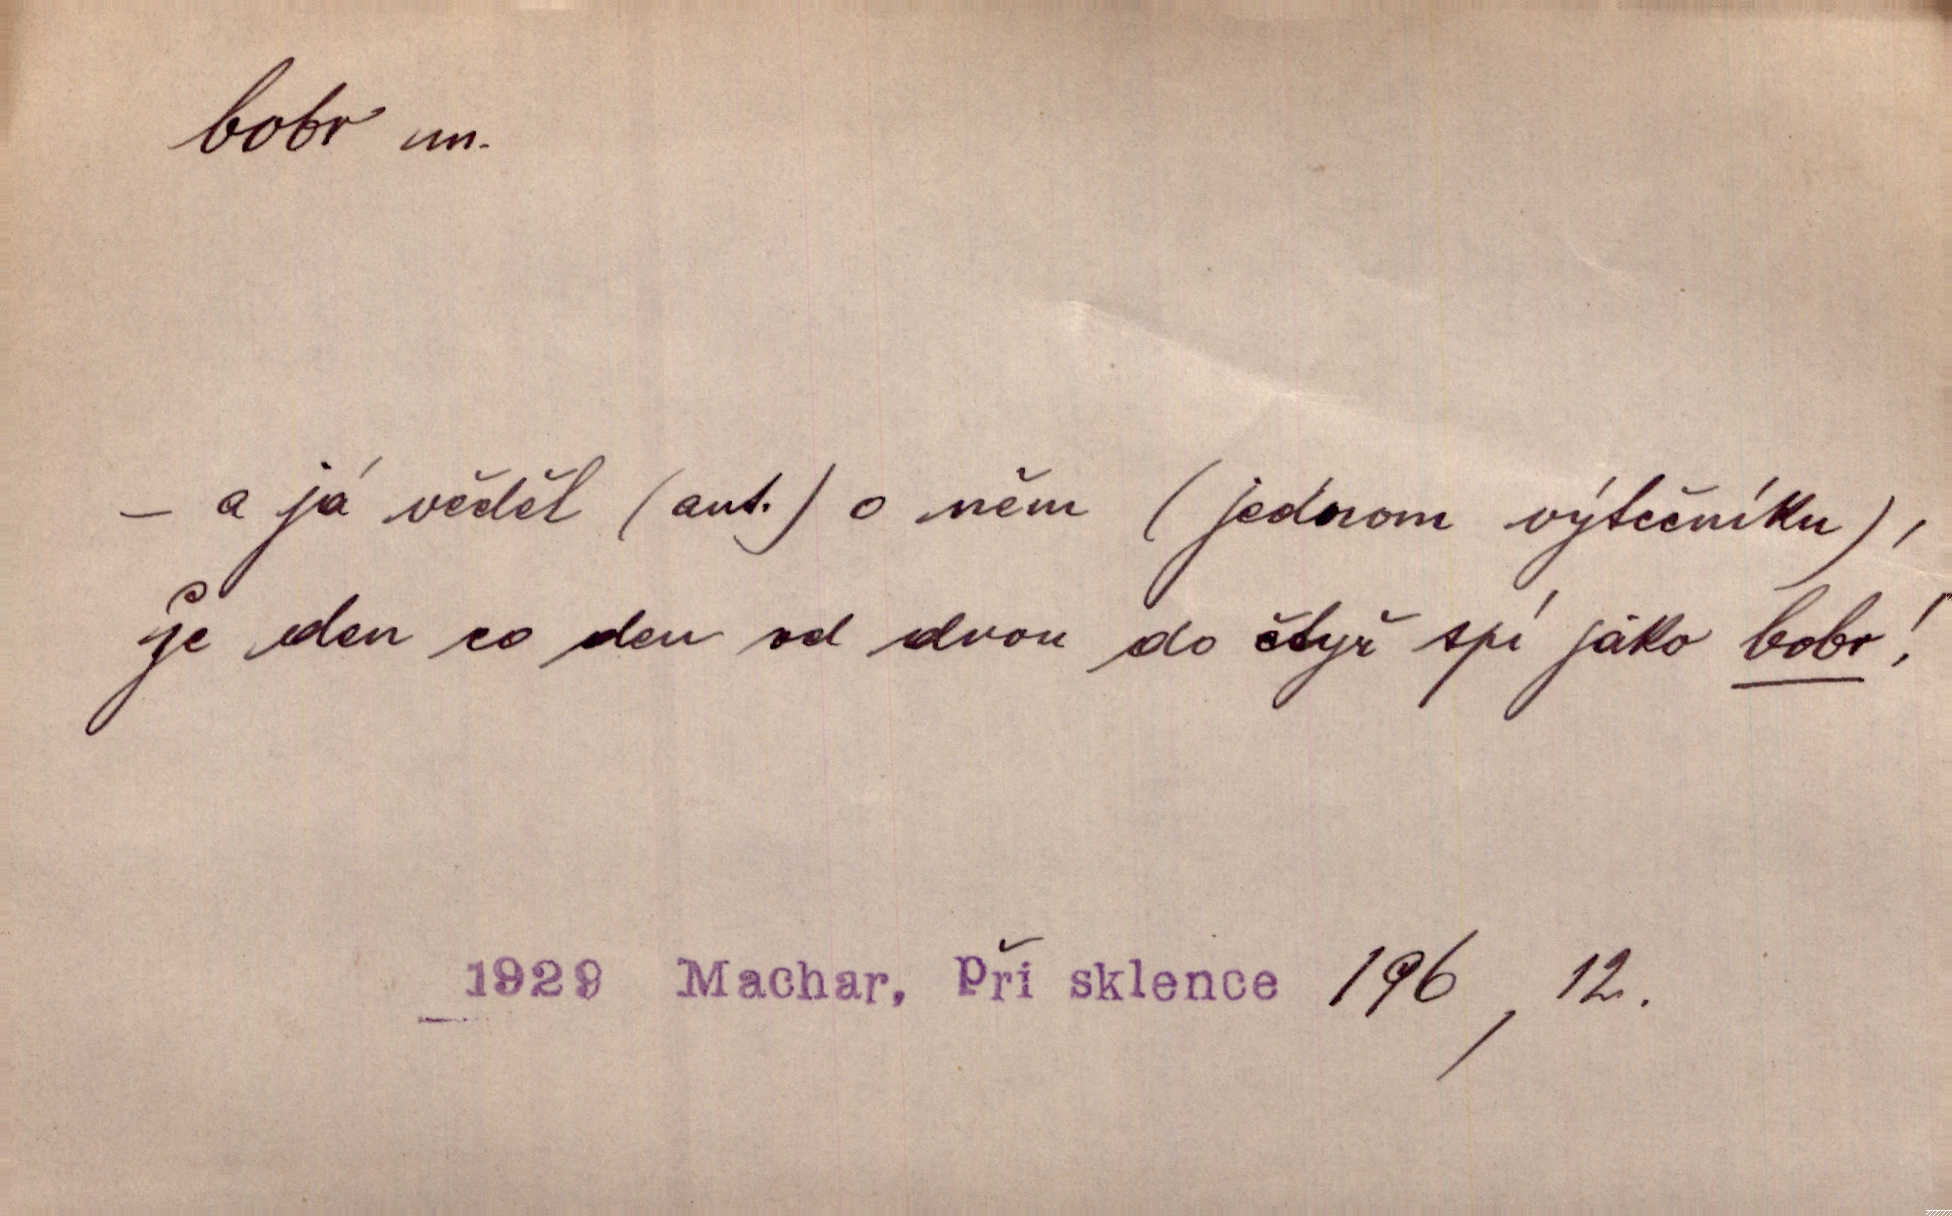 bobr m.
– a já věděl (aut.) o něm (jednom výtečníku),
že den co den od dvou do čtyř spí jako bobr!
1929 Machar, Při sklence 196, 12.